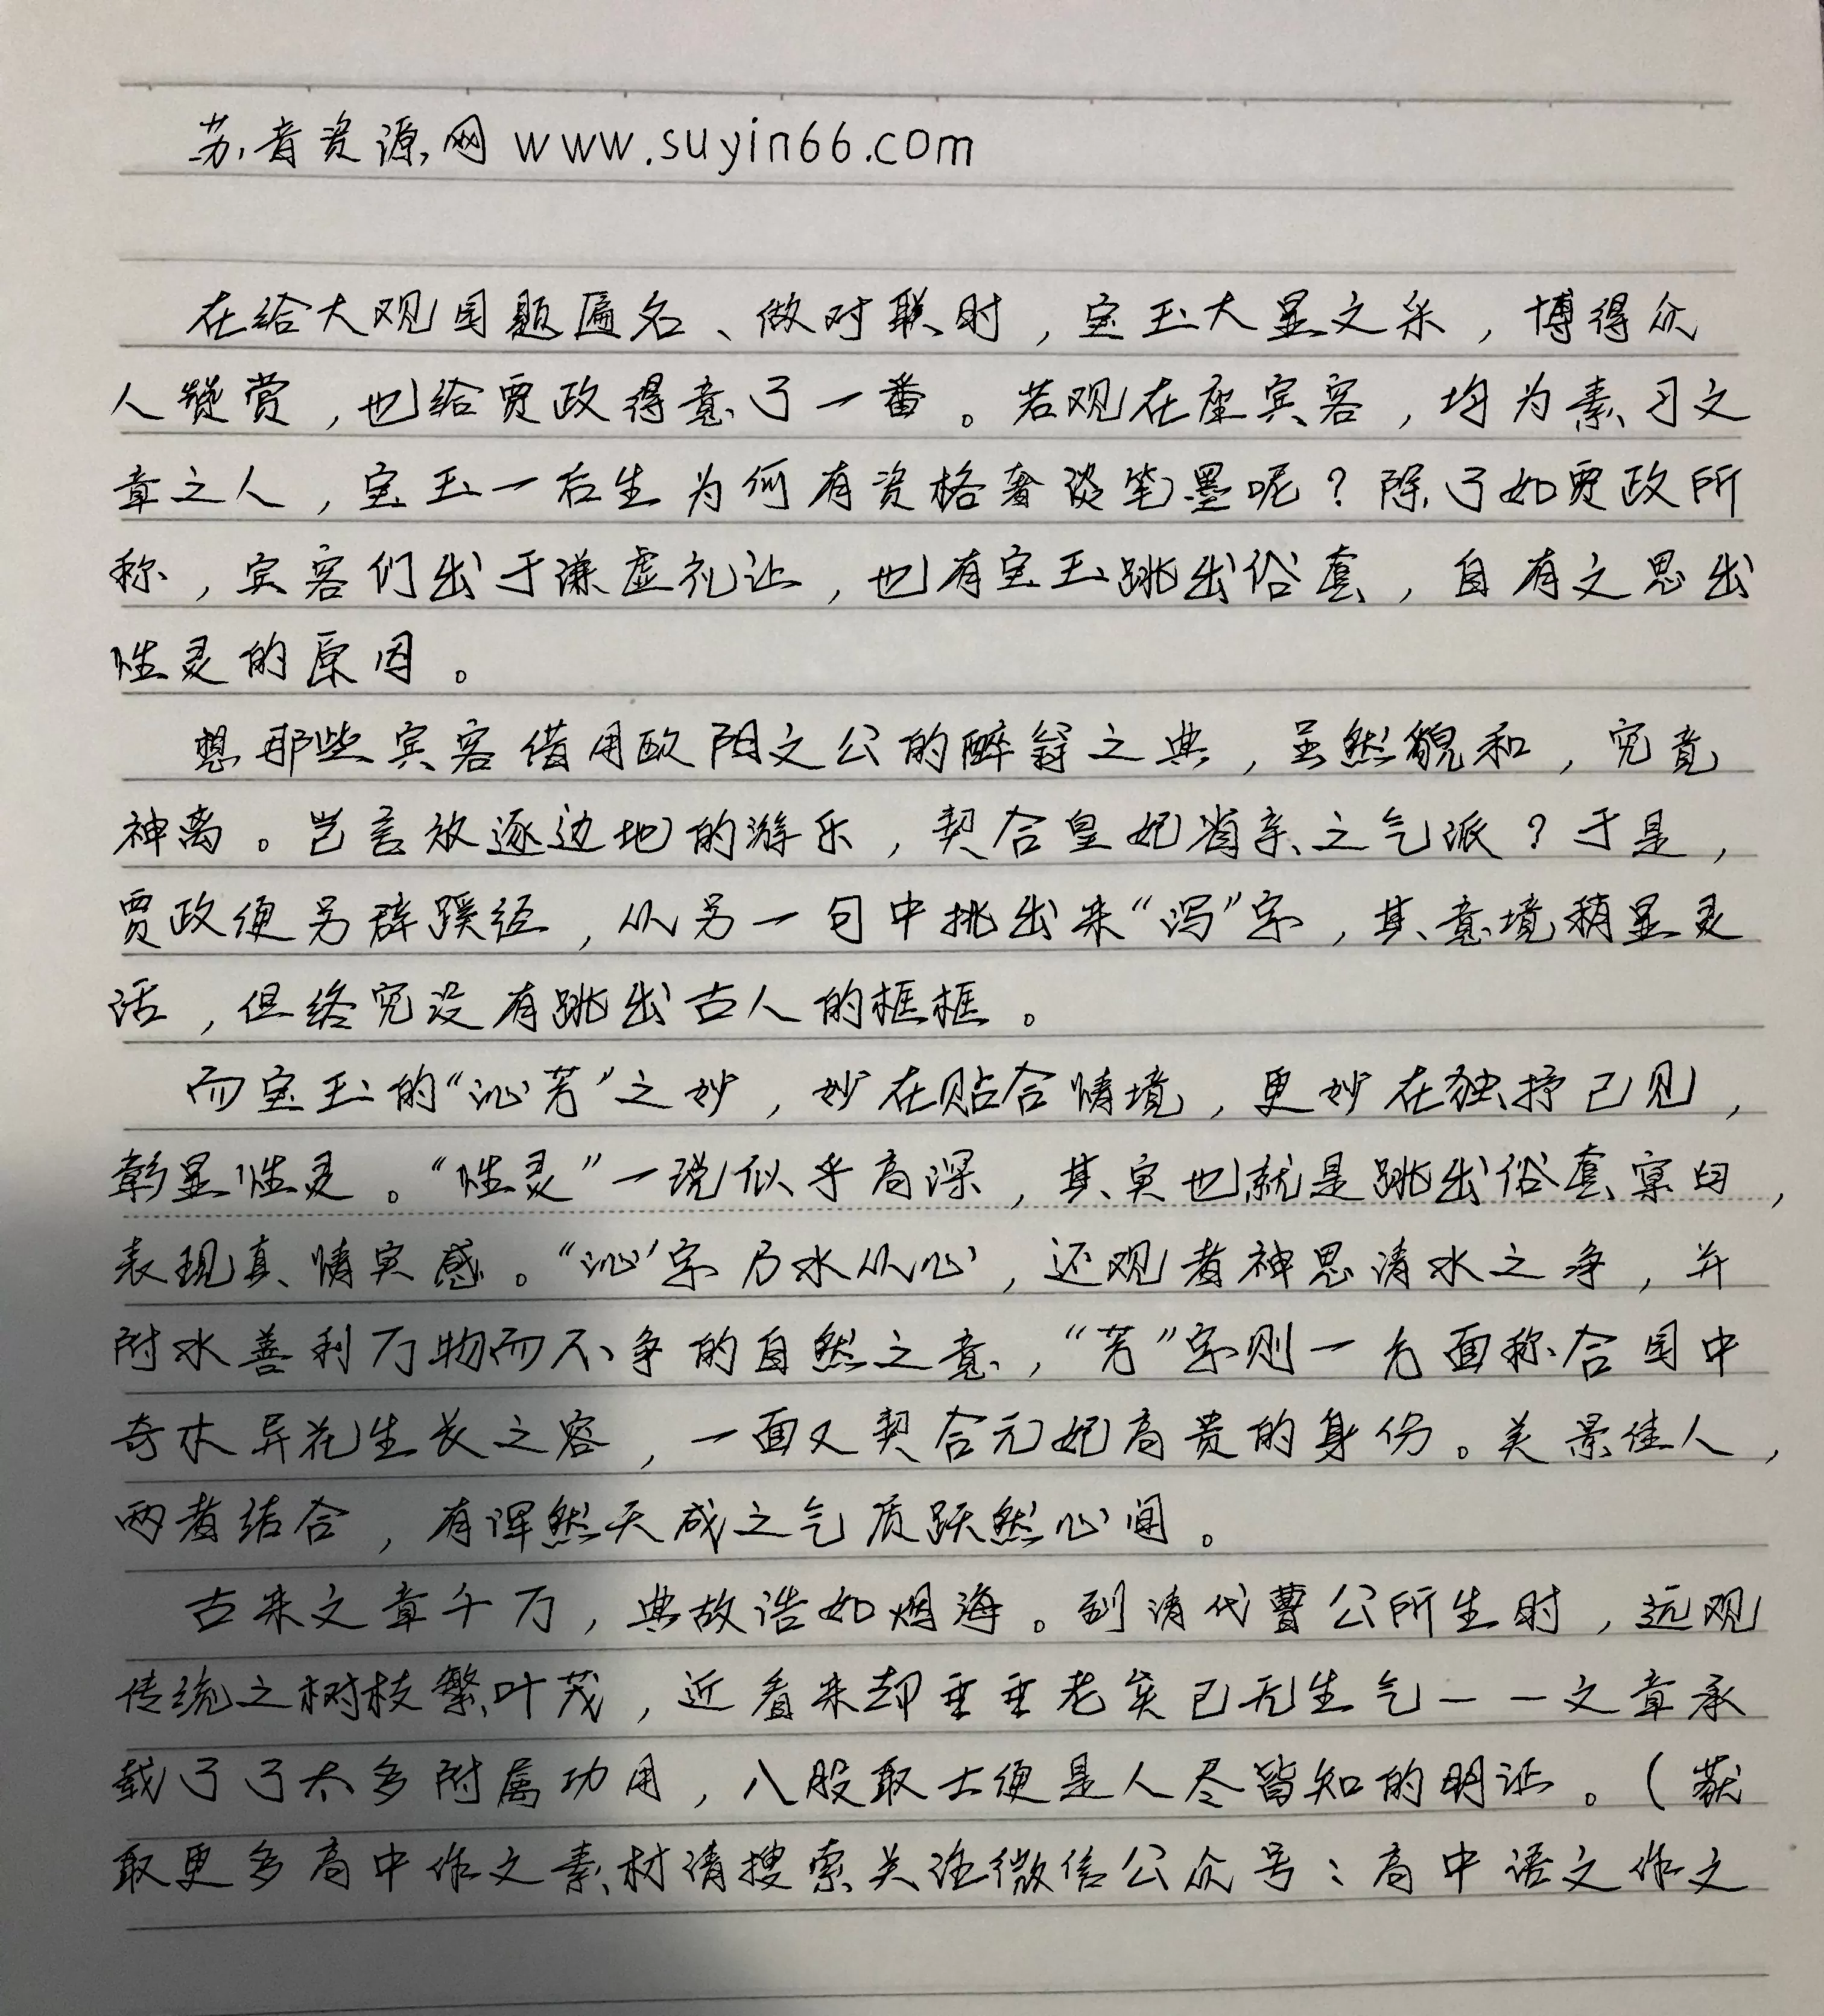 苏音资源网 www.suyin66.com
在给大观园题匾名、做对联时，宝玉大显文采，博得众
人赞赏，也给贾政得意了一番。若观在座宾客，均为素习文
章之人，宝玉一后生为何有资格奢谈笔墨呢？除了如贾政所
称，宾客们出于谦虚礼让，也有宝玉跳出俗套，自有文思出
性灵的原因。
想那些宾客借用欧阳文公的醉翁之典，虽然貌和，究竟
神离。岂言放逐边地的游乐，契合皇妃省亲之气派？于是，
贾政便另辟蹊径，从另一句中挑出来“泻”字，其意境稍显灵
活，但终究没有跳出古人的框框。
而宝玉的“沁芳”之妙，妙在贴合情境，更妙在独抒己见，
彰显性灵。“性灵”一说似乎高深，其实也就是跳出俗套窠臼，
表现真情实感。“沁”字乃水从心，还观者神思清水之净，并
附水善利万物而不争的自然之意，“芳”字则一方面称合园中
奇木异花生长之容，一面又契合元妃高贵的身份。美景佳人，
两者结合，有浑然天成之气质跃然心间。
古来文章千万，典故浩如烟海。到清代曹公所生时，远观
传统之树枝繁叶茂，近看来却垂垂老矣已无生气——文章承
载了了太多附属功用，八股取士便是人尽皆知的明证。（获
取更多高中作文素材请搜索关注微信公众号：高中语文作文